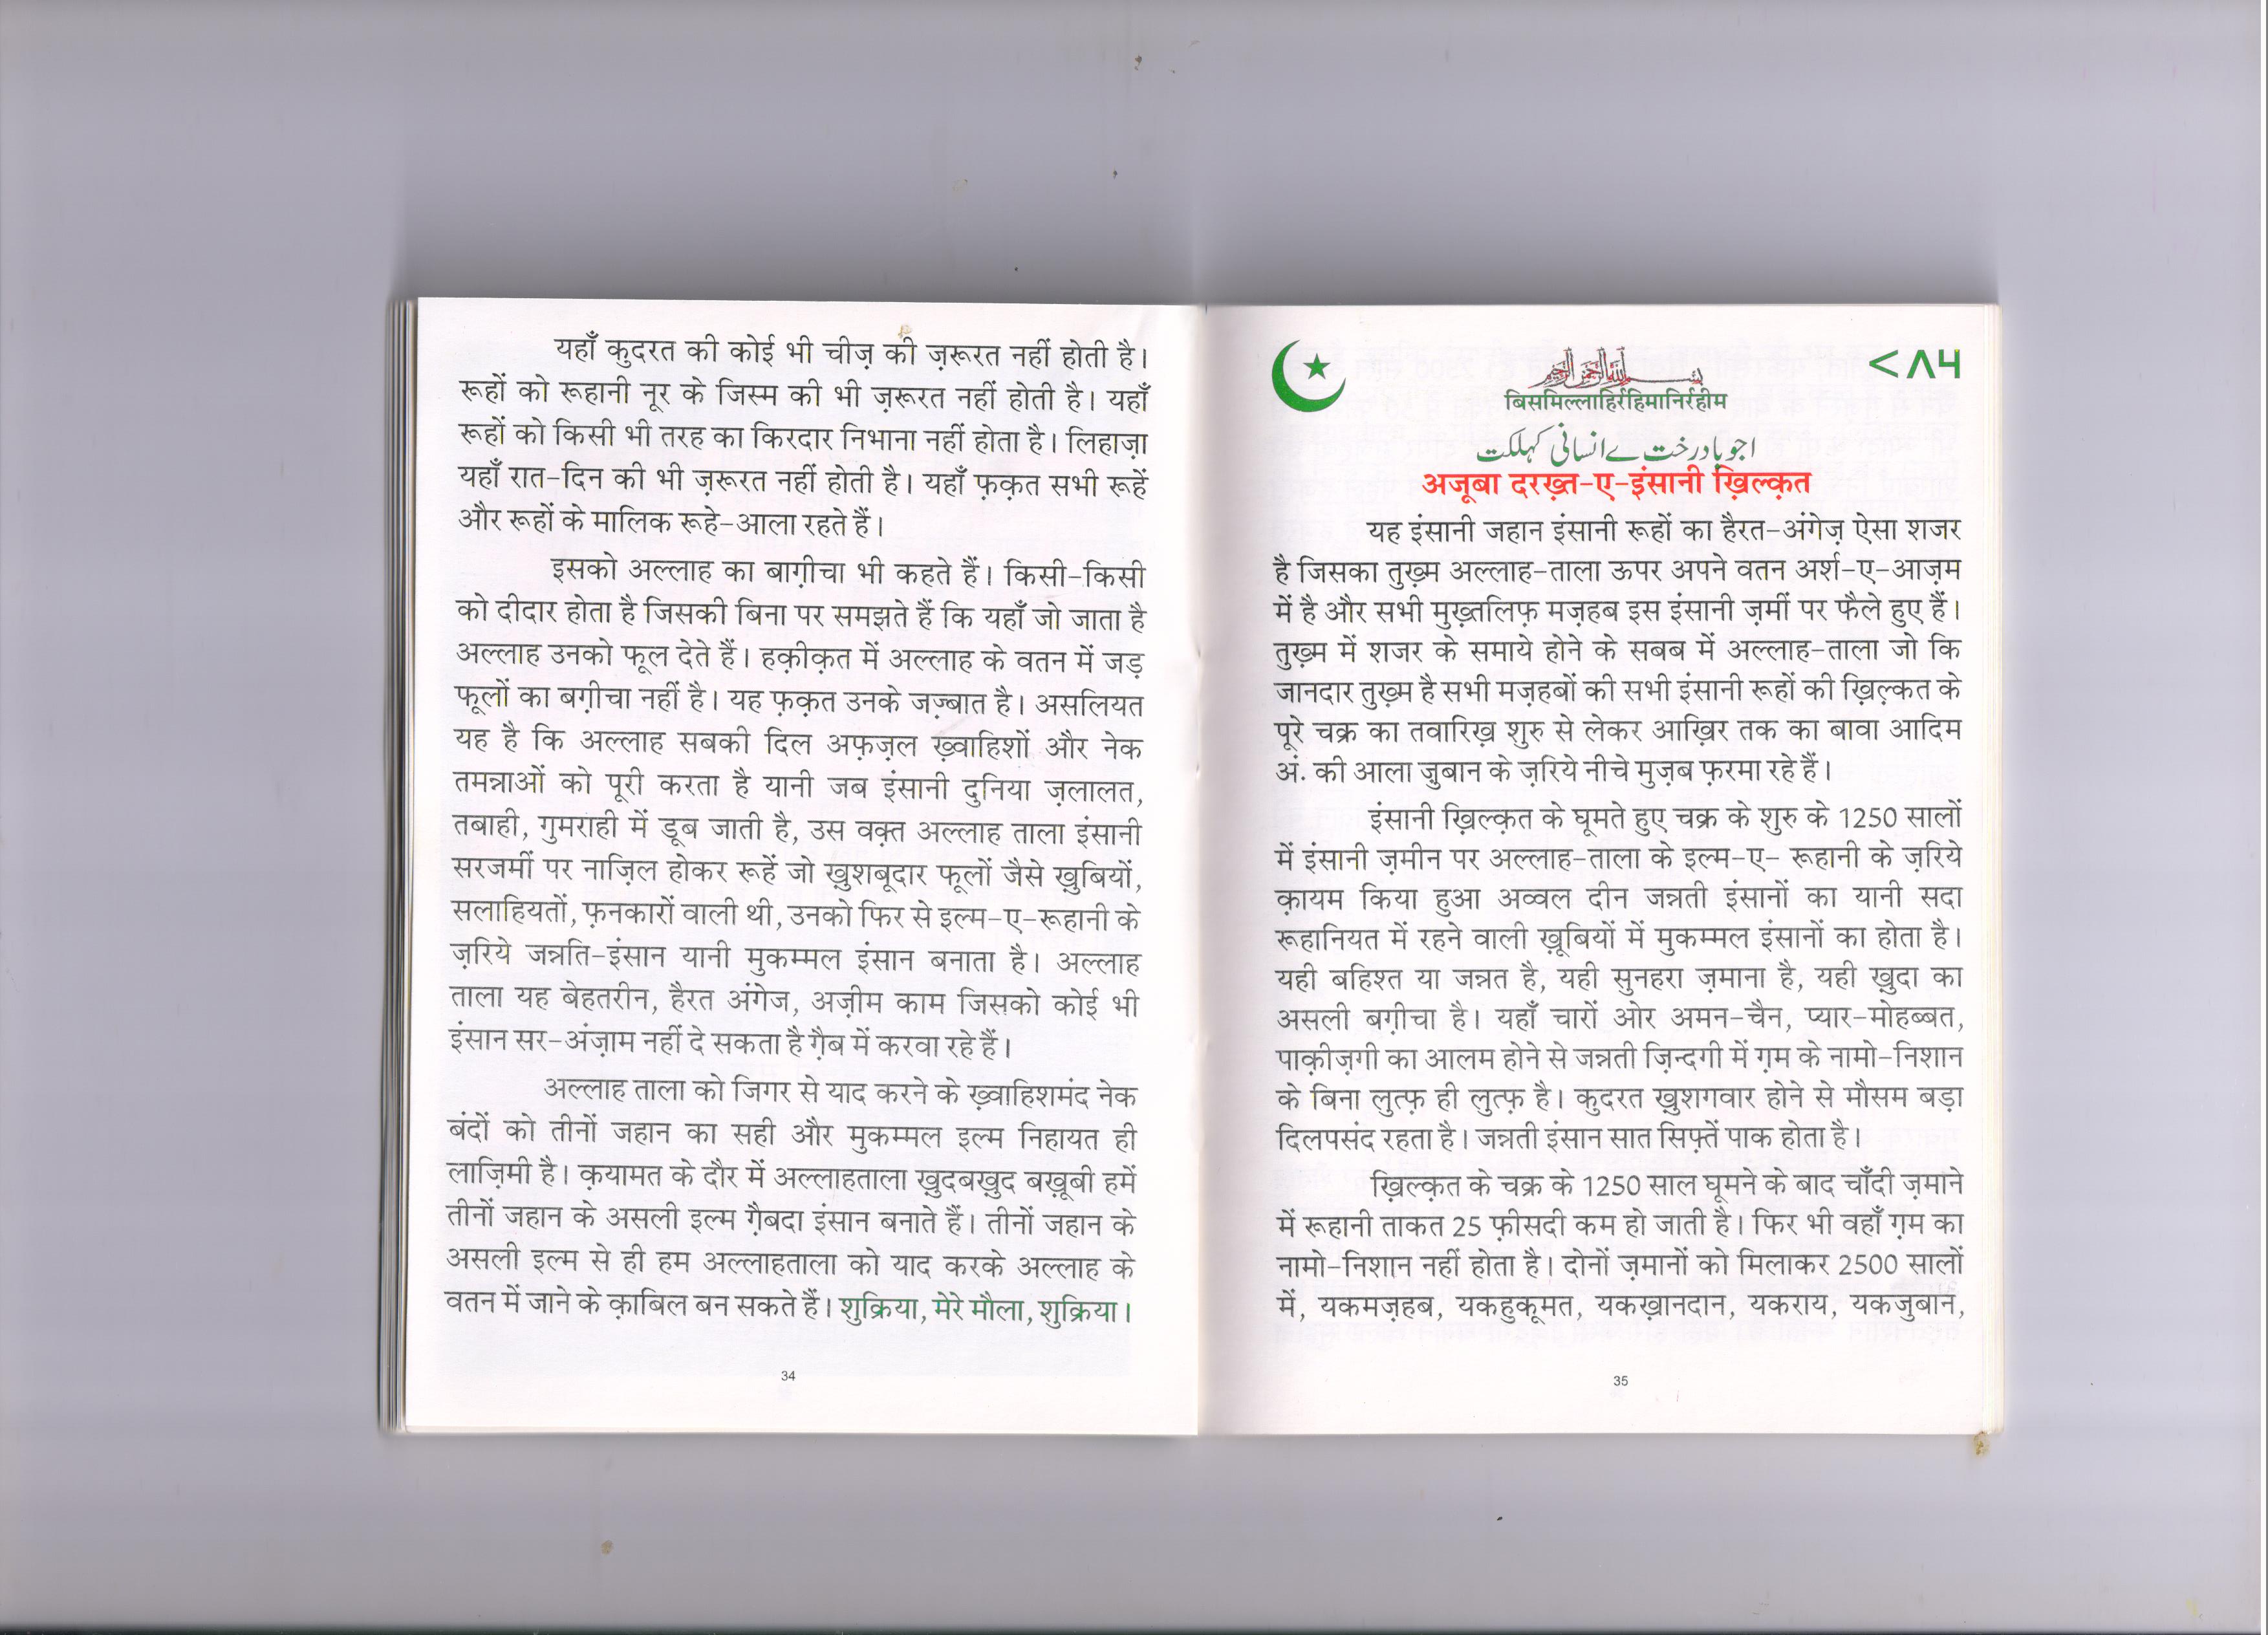 यहाँ कुदरत की कोई भी चीज़ की ज़रूरत नहीं होती है।
रूहों को रूहानी नूर के जिस्म की भी ज़रूरत नहीं होती है। यहाँ
रूहों को किसी भी तरह का किरदार निभाना नहीं होता है। लिहाज़ा
यहाँ रात-दिन की भी ज़रूरत नहीं होती है। यहाँ फ़क़त सभी रूहें
और रूहों के मालिक रूहे-आला रहते हैं।
इसको अल्लाह का बाग़ीचा भी कहते हैं। किसी-किसी
को दीदार होता है जिसकी बिना पर समझते हैं कि यहाँ जो जाता है
अल्लाह उनको फूल देते हैं। हक़ीक़त में अल्लाह के वतन में जड़
फूलों का बग़ीचा नहीं है। यह फ़क़त उनके जज़्बात है। असलियत
यह है कि अल्लाह सबकी दिल अफ़ज़ल ख़्वाहिशों और नेक
तमन्नाओं को पूरी करता है यानी जब इंसानी दुनिया ज़लालत,
तबाही, गुमराही में डूब जाती है, उस वक़्त अल्लाह ताला इंसानी
सरजमीं पर नाज़िल होकर रूहें जो ख़ुशबूदार फूलों जैसे ख़ुबियों,
सलाहियतों, फ़नकारों वाली थी, उनको फिर से इल्म-ए-रूहानी के
ज़रिये जन्नति-इंसान यानी मुकम्मल इंसान बनाता है। अल्लाह
ताला यह बेहतरीन, हैरत अंगेज, अज़ीम काम जिसको कोई भी
इंसान सर-अंज़ाम नहीं दे सकता है ग़ैब में करवा रहे हैं।
अल्लाह ताला को जिगर से याद करने के ख़्वाहिशमंद नेक
बंदों को तीनों जहान का सही और मुकम्मल इल्म निहायत ही
लाज़िमी है। क़यामत के दौर में अल्लाहताला ख़ुदबख़ुद बख़ूबी हमें
तीनों जहान के असली इल्म ग़ैबदा इंसान बनाते हैं। तीनों जहान के
असली इल्म से ही हम अल्लाहताला को याद करके अल्लाह के
वतन में जाने के क़ाबिल बन सकते हैं। शुक्रिया, मेरे मौला, शुक्रिया।
34
<౹៱५
بسم الله الرحمن الرحيم
बिसमिल्लाहिर्रहिमानिर्रहीम
اجوبا درخت ے انسانی کہلکت
अजूबा दरख़्त-ए-इंसानी ख़िल्क़त
यह इंसानी जहान इंसानी रूहों का हैरत-अंगेज़ ऐसा शजर
है जिसका तुख़्म अल्लाह-ताला ऊपर अपने वतन अर्श-ए-आज़म
में है और सभी मुख़्तलिफ़ मज़हब इस इंसानी ज़मीं पर फैले हुए हैं।
तुख़्म में शजर के समाये होने के सबब में अल्लाह-ताला जो कि
जानदार तुख़्म है सभी मज़हबों की सभी इंसानी रूहों की ख़िल्क़त के
पूरे चक्र का तवारिख़ शुरु से लेकर आख़िर तक का बावा आदिम
अं. की आला ज़ुबान के ज़रिये नीचे मुज़ब फ़रमा रहे हैं।
इंसानी ख़िल्क़त के घूमते हुए चक्र के शुरु के 1250 सालों
में इंसानी ज़मीन पर अल्लाह-ताला के इल्म-ए- रूहानी के ज़रिये
क़ायम किया हुआ अव्वल दीन जन्नती इंसानों का यानी सदा
रूहानियत में रहने वाली ख़ूबियों में मुकम्मल इंसानों का होता है।
यही बहिश्त या जन्नत है, यही सुनहरा ज़माना है, यही ख़ुदा का
असली बग़ीचा है। यहाँ चारों ओर अमन-चैन, प्यार-मोहब्बत,
पाक़ीज़गी का आलम होने से जन्नती ज़िन्दगी में ग़म के नामो-निशान
के बिना लुत्फ़ ही लुत्फ़ है। कुदरत ख़ुशगवार होने से मौसम बड़ा
दिलपसंद रहता है। जन्नती इंसान सात सिफ़्तें पाक होता है।
ख़िल्क़त के चक्र के 1250 साल घूमने के बाद चाँदी ज़माने
में रूहानी ताकत 25 फ़ीसदी कम हो जाती है। फिर भी वहाँ ग़म का
नामो-निशान नहीं होता है। दोनों ज़मानों को मिलाकर 2500 सालों
में, यकमज़हब, यकहुकूमत, यकख़ानदान, यकराय, यकजुबान,
35